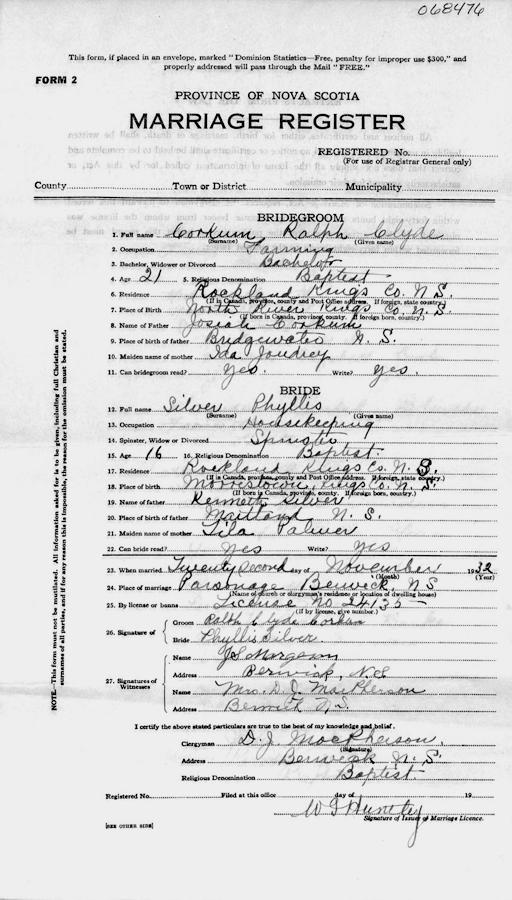 068476
This form, if placed in an envelope, marked "Dominion Statistics—Free, penalty for improper use $300," and
properly addressed will pass through the Mail "FREE."
FORM 2
PROVINCE OF NOVA SCOTIA
MARRIAGE REGISTER
REGISTERED No.
(For use of Registrar General only)
County Town or District Municipality
BRIDEGROOM
1. Full name Corkum, Ralph Clyde
(Surname) (Given name)
2. Occupation Farming
3. Bachelor, Widower or Divorced Bachelor
4. Age 21 5. Religious Denomination Baptist
6. Residence Rockland Kings Co. N.S.
(If in Canada, province, county and Post Office address. If foreign, state country.)
7. Place of Birth North River Kings Co. N.S.
(If born in Canada, province, county. If foreign born, country.)
8. Name of Father Josiah Corkum
9. Place of birth of father Bridgewater N. S.
10. Maiden name of mother Ida Joudrey
11. Can bridegroom read? Yes. Write? Yes.
BRIDE
12. Full name Silver Phyllis
(Surname) (Given name)
13. Occupation Housekeeping
14. Spinster, Widow or Divorced Spinster
15. Age 16 16. Religious Denomination Baptist
17. Residence Rockland Kings Co. N.S.
(If in Canada, province, county and Post Office address. If foreign, state country.)
18. Place of birth Morristown Kings Co. N.S.
(If born in Canada, province, county. If foreign born, country.)
19. Name of father Kenneth Silver
20. Place of birth of father Maitland N. S.
21. Maiden name of mother Lila Palmer
22. Can bride read? Yes Write? Yes
23. When married Twenty Second day of November 1932
(Month) (Year)
24. Place of marriage Parsonage Berwick NS
(Name of church or clergyman's residence or location of dwelling house)
25. By license or banns License No 24135
(If by license, give number.)
26. Signature of Groom Ralph Clyde Corkum
Bride Phyllis Silver
27. Signatures of Witnesses Name J S Margeson
Address Berwick, N.S.
Name Mrs. D. J. MacPherson
Address Berwick N.S.
I certify the above stated particulars are true to the best of my knowledge and belief.
Clergyman D. J. MacPherson
(Signature)
Address Berwick N. S.
Religious Denomination Baptist
Registered No. Filed at this office day of 19
W F Huntley
Signature of Issuer of Marriage Licence.
[SEE OTHER SIDE]
NOTE—This form must not be mutilated. All information asked for is to be given, including full Christian and
surnames of all parties, and if for any reason this is impossible, the reason for the omission must be stated.